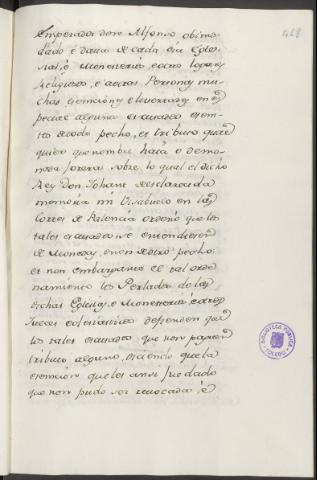 418
Emperador don Alfonso obimo
dado é dava á cada una Egle
sia, ó Monesterio, é otros logares
Religiosos, é á otras Personas mu
chas esenciones
pecial alguna escusados esen
tos de todo pecho, et tributo qual
quier que nombre haia o demo
neda forera sobre lo qual el dicho
Rey don Johan de esclarecida
memoria mi Visabuelo en las
Cortes de Palencia ordenó que los
tales escusados se entendiesen
de Monedas, é non de otro pecho:
et non embargante el tal orde
namiento los Perlados de las
dichas Eglesias, é Monesterios é otros
Jueces eclesiasticos defienden que
los tales escusados que non paguen
tributo alguno, diciendo que la
esencion que les ansi fue dado
que non pudo ser revocado, é
BIBLIOTECA PUBLICA
TOLEDO